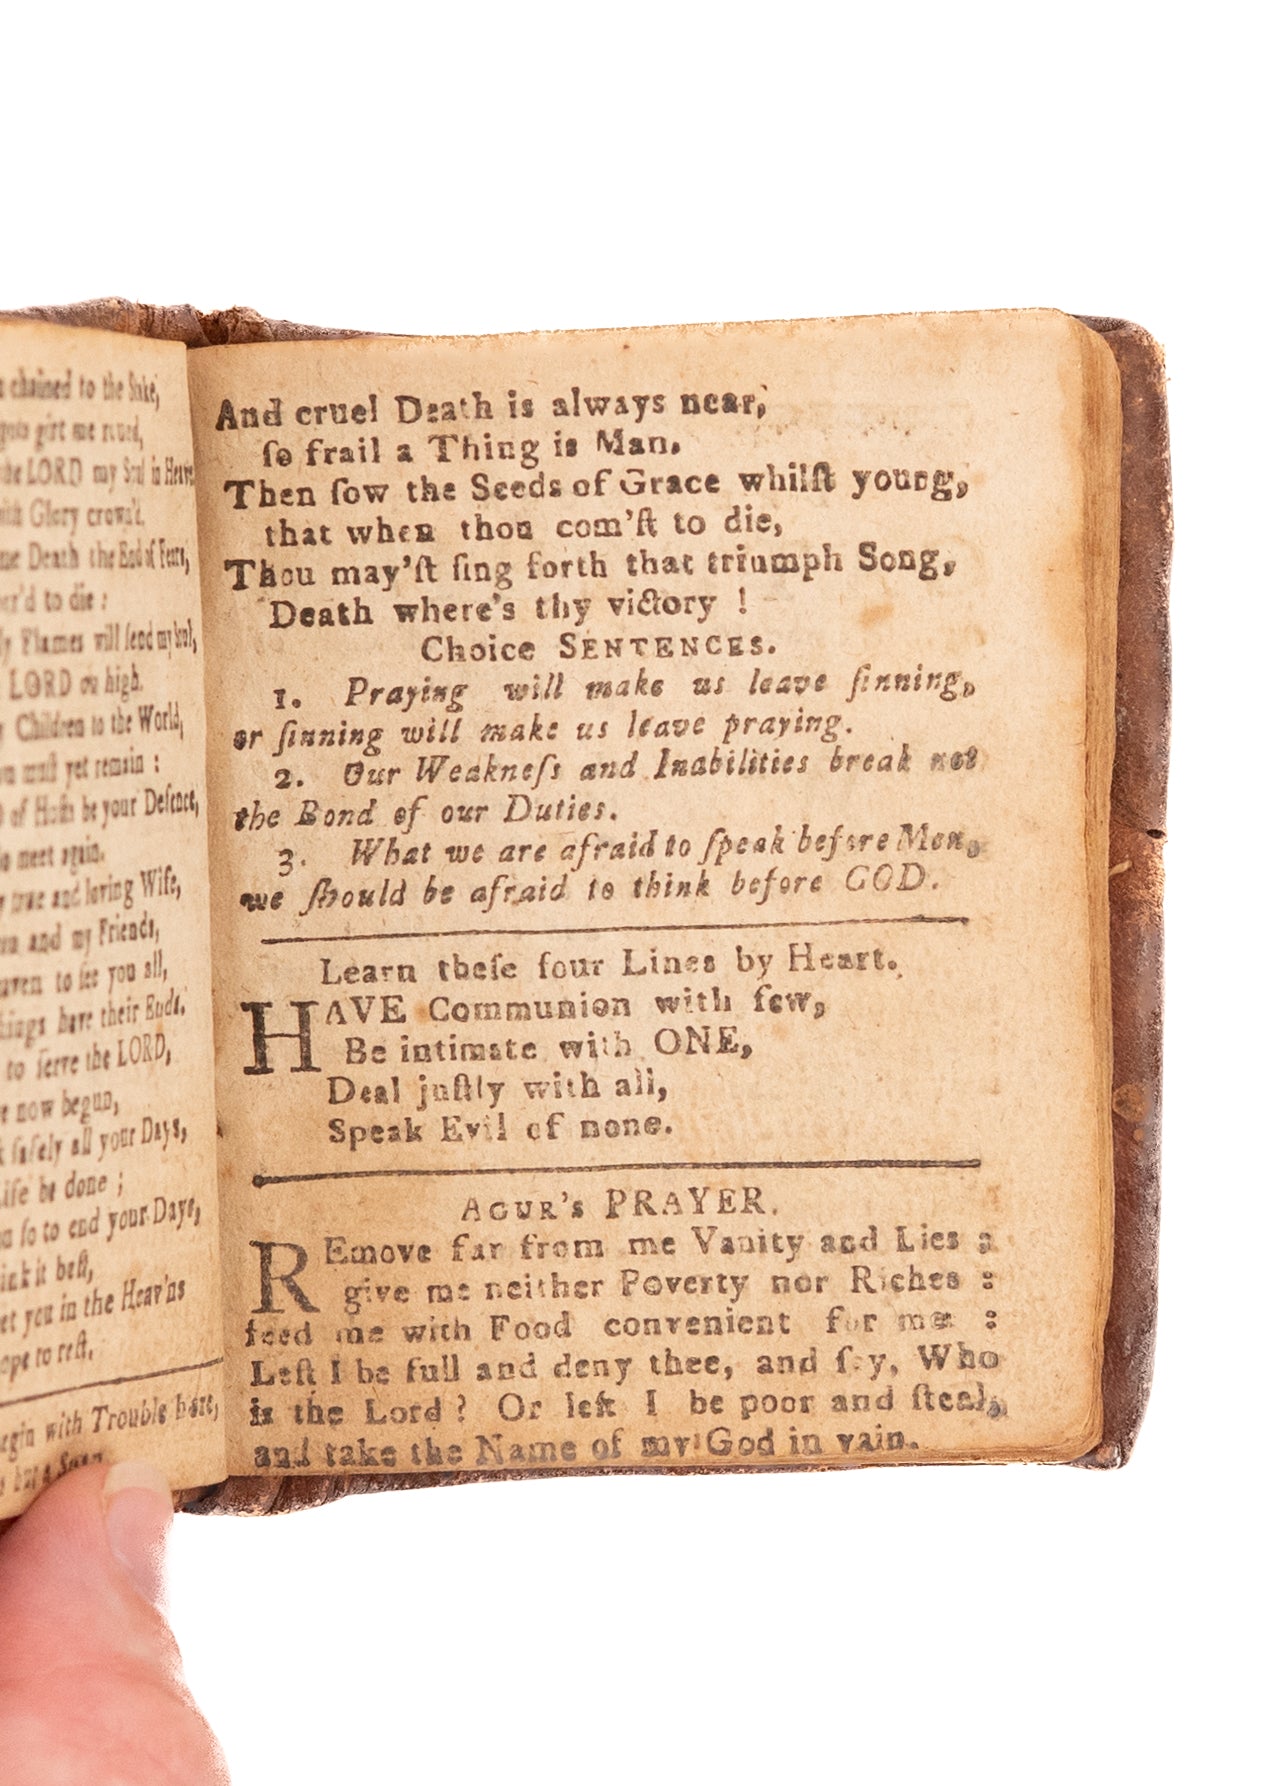 chained to the Stake,
girt me round,
the LORD my Soul in Heav'n
with Glory crown'd.
Death the End of Fears,
to die :
Flames will send my Soul,
LORD on high.
Children to the World,
must yet remain :
of Hosts be your Defence,
meet again.
true and loving Wife,
and my Friends,
to see you all,
have their Ends.
to serve the LORD,
now begun,
ſafely all your Days,
Life be done ;
ſo to end your Days,
think it beſt,
you in the Heav'ns
to reſt.
with Trouble here,
And cruel Death is always near,
ſo frail a Thing is Man.
Then ſow the Seeds of Grace whilſt young,
that when thou com'ſt to die,
Thou may'ſt ſing forth that triumph Song,
Death where's thy victory !
Choice SENTENCES.
1. Praying will make us leave ſinning,
or ſinning will make us leave praying.
2. Our Weakneſs and Inabilities break not
the Bond of our Duties.
3. What we are afraid to ſpeak before Men,
we ſhould be afraid to think before GOD.
Learn theſe four Lines by Heart.
HAVE Communion with few,
Be intimate with ONE,
Deal juſtly with all,
Speak Evil of none.
AGUR's PRAYER.
REmove far from me Vanity and Lies ;
give me neither Poverty nor Riches :
feed me with Food convenient for me :
Leſt I be full and deny thee, and ſay, Who
is the Lord ? Or leſt I be poor and ſteal,
and take the Name of my God in vain.